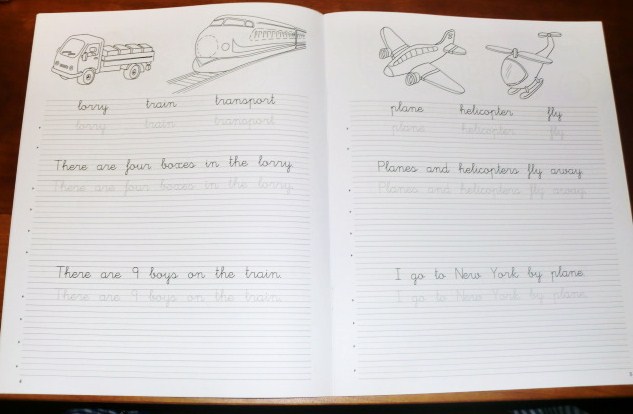 lorry train transport
lorry train transport
There are four boxes in the lorry.
There are four boxes in the lorry.
There are 9 boys on the train.
There are 9 boys on the train.
plane helicopter fly
plane helicopter fly
Planes and helicopters fly away.
Planes and helicopters fly away.
I go to New York by plane.
I go to New York by plane.